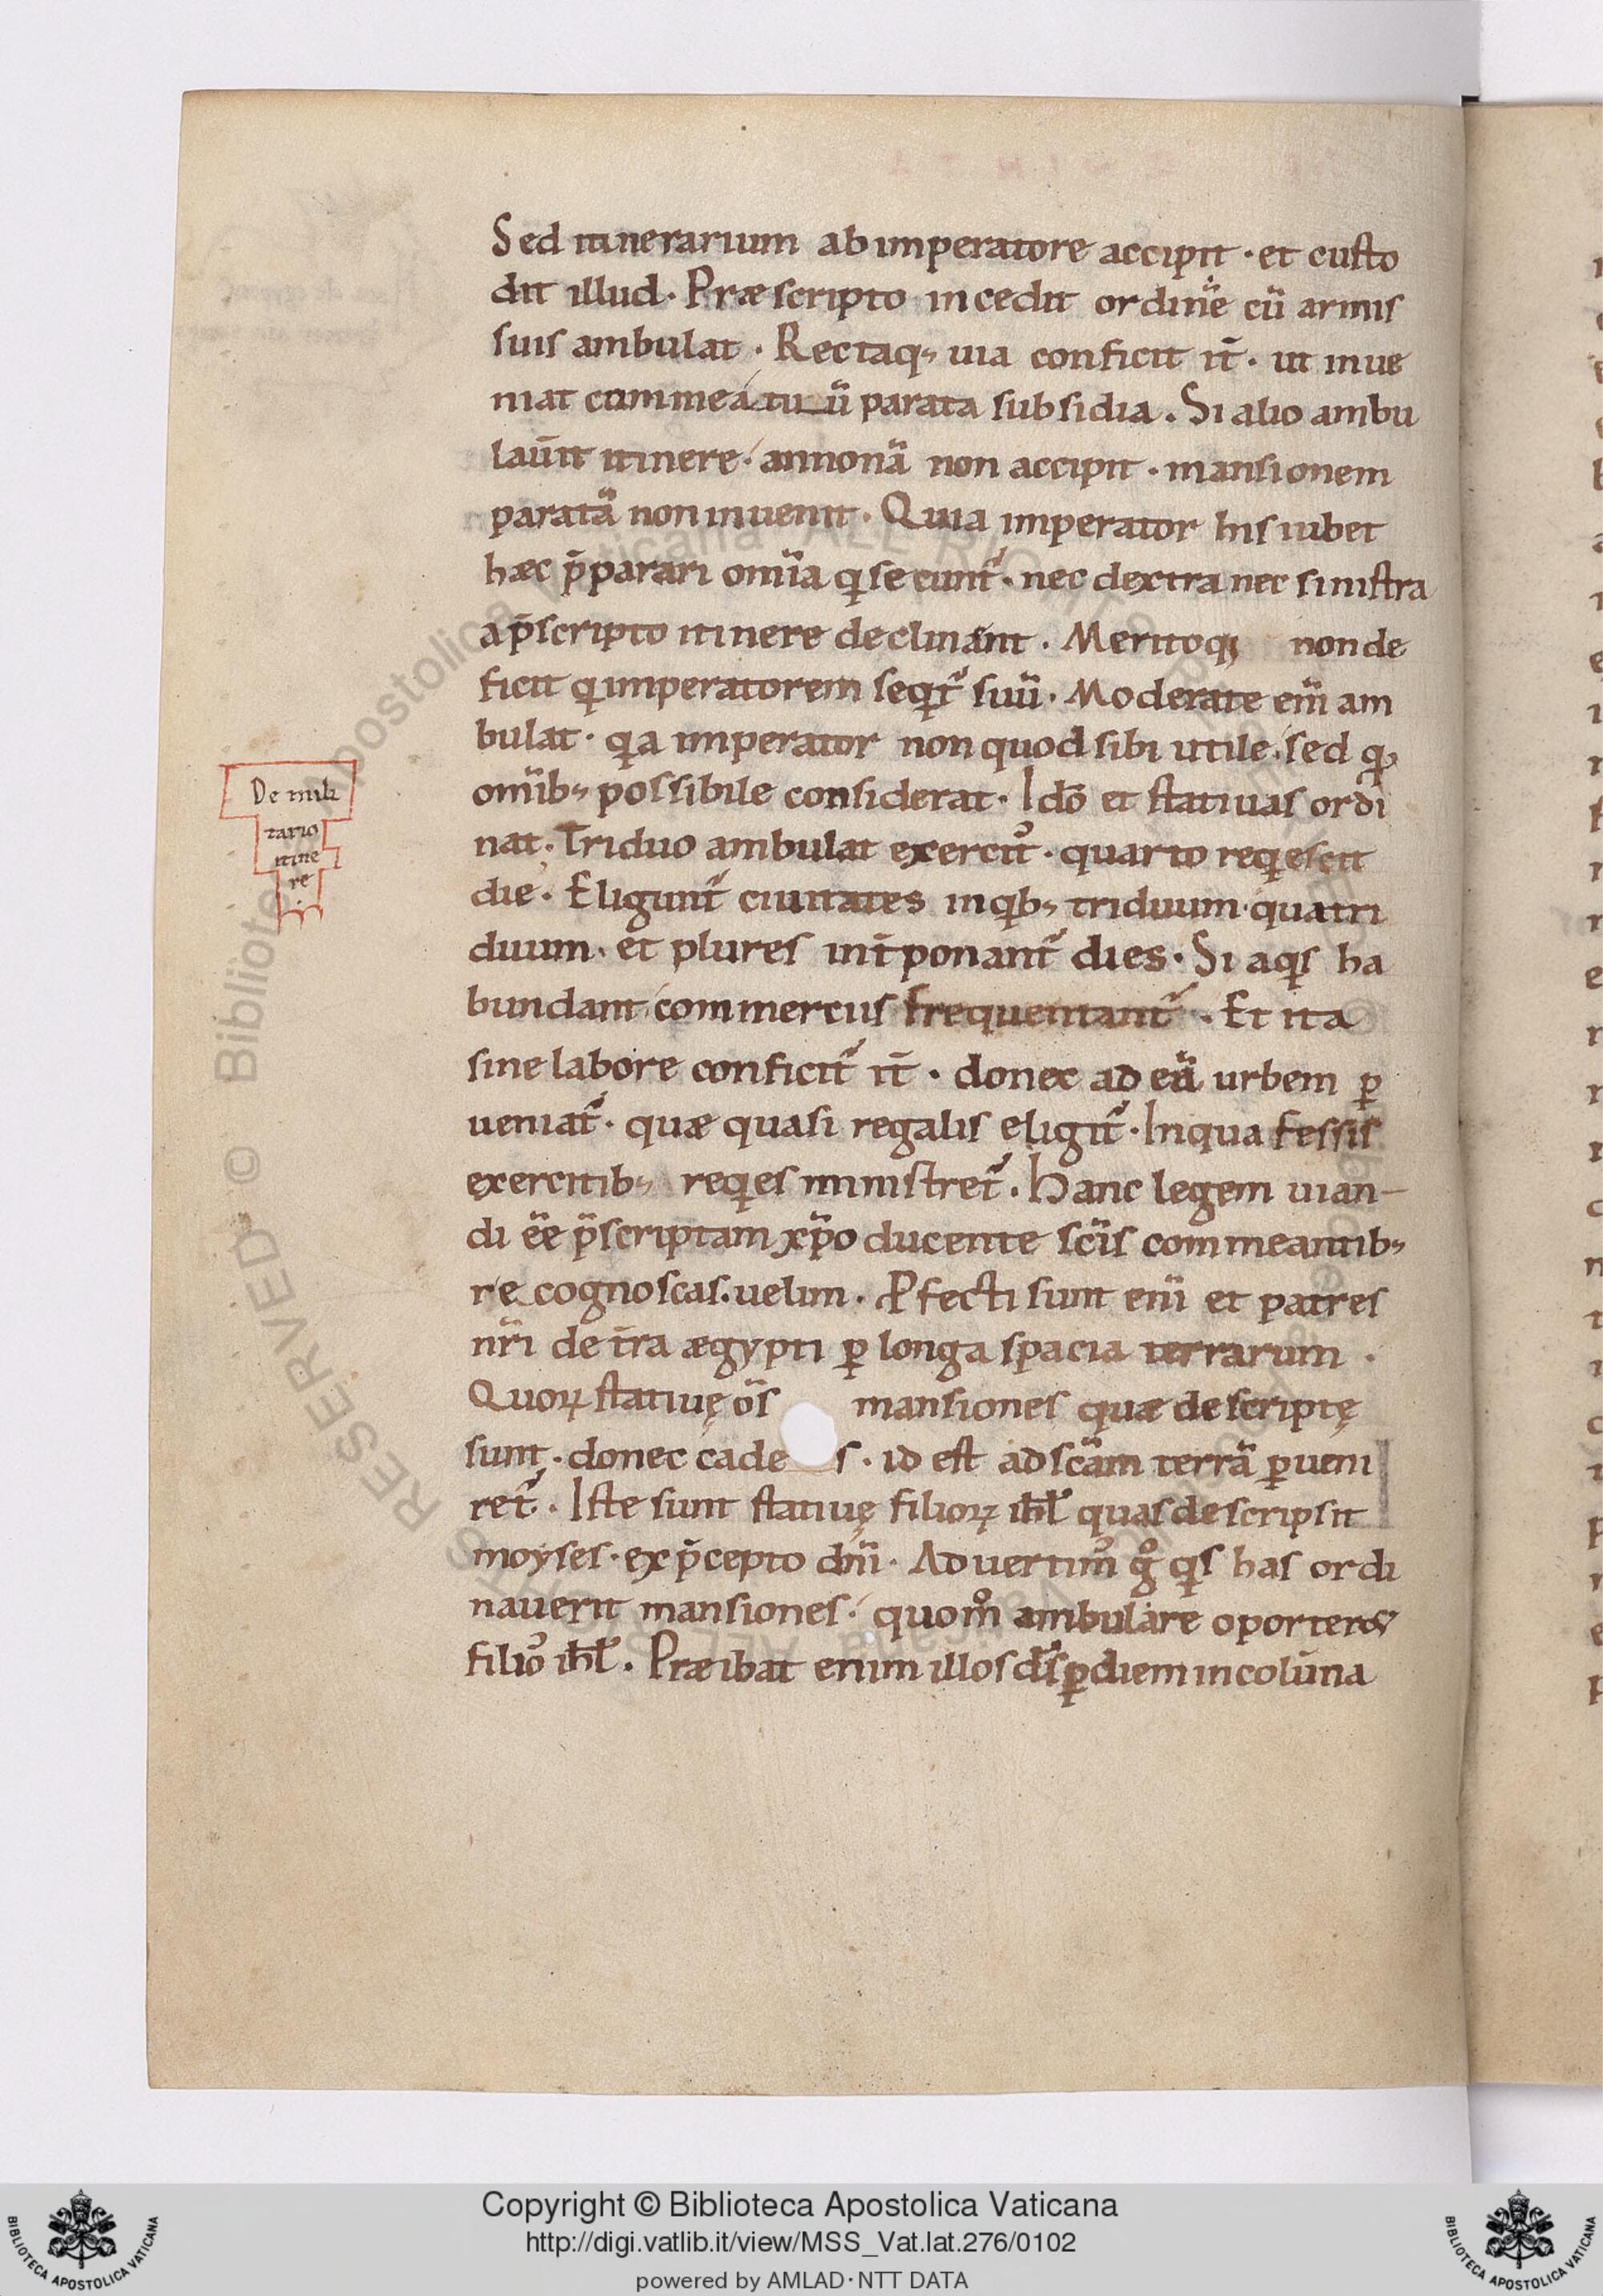 Sed itinerarium ab imperatore accipit · et custo
dit illud · Præscripto incedit ordinē cū armis
suis ambulat · Rectaq; uia conficit it̄ · ut inue
niat commeatuū parata subsidia . Si alio ambu
lau̅it itinere · annonā non accipit · mansionem
paratā non inuenit · Quia imperator his iubet
hæc p̄parari om̄ia q̇ secunt᷑ · nec dextra nec sinistra
a p̄scripto itinere declinant . Meritoq; non de
ficit q̇ imperatorem seq̇t᷑ suū · Moderate em̄ am
bulat · q̇a imperator non quod sibi utile · sed qđ
om̄ib; possibile considerat · Idō et statiuas ordi
nat · Triduo ambulat exercit᷒ · quarto req̇escit
die · Eligunt᷑ ciuitates in q̇b; triduum · quatri
duum · et plures int̄ponant᷑ dies · Si aq̇s ha
bundant commerciis frequentant᷑ · Et ita
sine labore conficit᷑ it̄ · donec ad eā urbem ꝑ
ueniat᷑ · quæ quasi regalis eligit᷑ · In qua fessis
exercitib; req̇es ministret᷑ . Hanc legem uian-
di ēe p̄scriptam xp̄o ducente sc̄is commeantib;
recognoscas · uelim . Ꝓfecti sunt eni̅ et patres
nr̄i de t̄ra ægypti ꝑ longa spacia terrarum .
Quoꝝ statiuę om̄s mansiones quæ descriptę
sunt · donec cades · id est ad sc̄am terrā ꝑueni
ret᷑ . Iste sunt statiuę filioꝝ isr̄l quas descripsit
moyses · ex p̄cepto dn̄i · Aduertim᷒ gͦ q̇s has ordi
nauerit mansiones · quom̊ ambulare oporteret
filio᷒ isr̄l . Præibat enim illos d̄s ꝑ diem in colūna
De mili
tario
itine
re
© Biblioteca Apostolica Vaticana ALL RIGHTS RESERVED
Copyright © Biblioteca Apostolica Vaticana
http://digi.vatlib.it/view/MSS_Vat.lat.276/0102
powered by AMLAD·NTT DATA
BIBLIOTECA APOSTOLICA VATICANA
BIBLIOTECA APOSTOLICA VATICANA